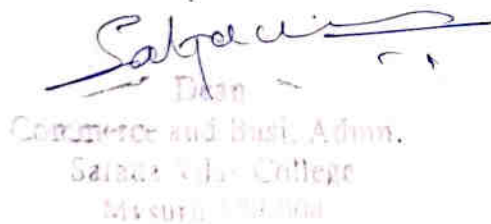 Dean
Commerce and Busi. Admn.
Sarada Vilas College
Mysuru